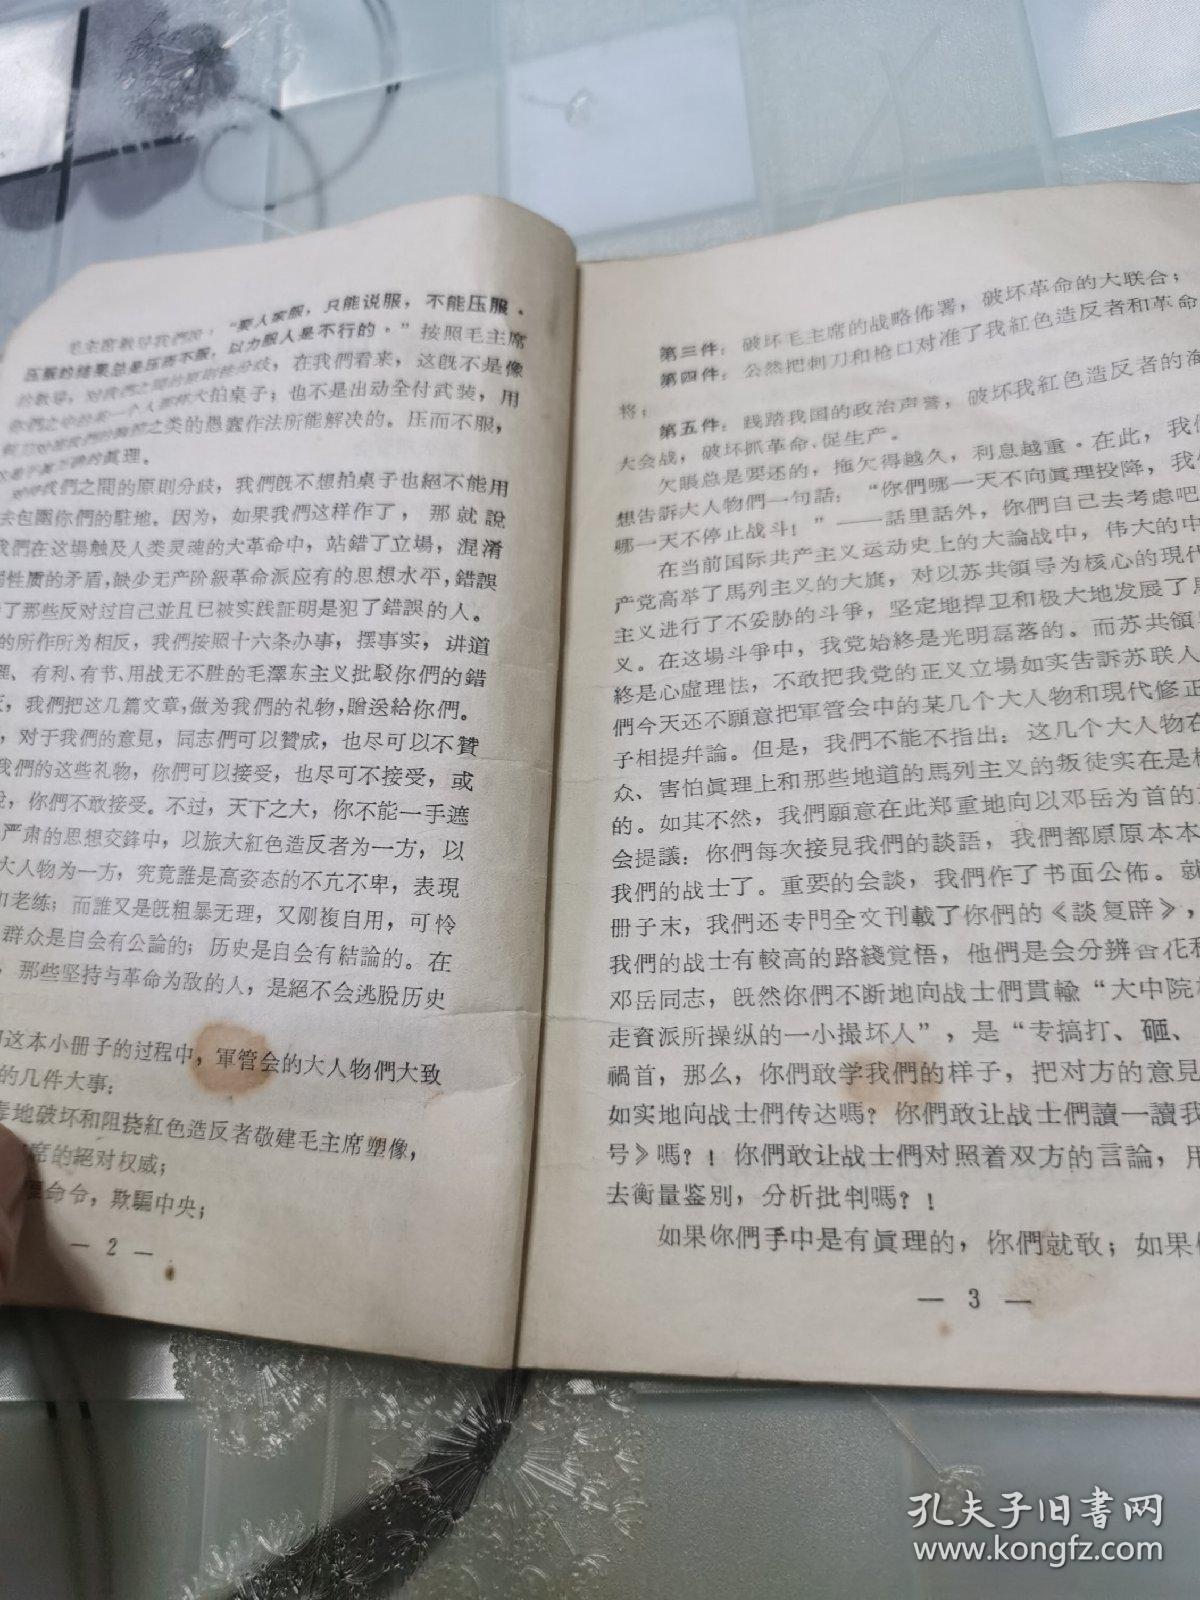 毛主席教导我們說："要人家服，只能说服，不能压服。
压服的结果总是压而不服，以力服人是不行的。"按照毛主席
的教导，对我們之間的原則性分歧，在我們看来，这旣不是像
你們之中的某一个人那样大拍桌子；也不是出动全付武装，用
之类的愚蠢作法所能解决的。压而不服，
眞理。
我們之間的原则分歧，我們旣不想拍桌子也絕不能用
去包圍你們的駐地。因为，如果我們这样作了，那就說
我們在这場触及人类灵魂的大革命中，站錯了立場，混淆
性质的矛盾，缺少无产阶級革命派应有的思想水平，錯誤
了那些反对过自己並且已被实践証明是犯了錯誤的人。
的所作所为相反，我們按照十六条办事，摆事实，讲道
、有利、有节、用战无不胜的毛澤东主义批駁你們的錯
，我們把这几篇文章，做为我們的礼物，贈送給你們。
，对于我們的意見，同志們可以贊成，也尽可以不贊
我們的这些礼物，你們可以接受，也尽可不接受，或
，你們不敢接受。不过，天下之大，你不能一手遮
严肃的思想交鋒中，以旅大紅色造反者为一方，以
大人物为一方，究竟誰是高姿态的不亢不卑，表現
和老练；而誰又是旣粗暴无理，又刚複自用，可怜
群众是自会有公論的；历史是自会有結論的。在
，那些坚持与革命为敌的人，是絕不会逃脫历史
这本小册子的过程中，軍管会的大人物們大致
的几件大事：
毒地破坏和阻挠紅色造反者敬建毛主席塑像，
席的絕对权威；
命令，欺騙中央；
— 2 —
第三件：破坏毛主席的战略佈署，破坏革命的大联合；
第四件：公然把刺刀和枪口对准了我紅色造反者和革命
将；
第五件：践踏我国的政治声誉，破坏我紅色造反者的海
大会战，破坏抓革命、促生产。
欠賬总是要还的，拖欠得越久，利息越重。在此，我們
想告訴大人物們一句話："你們哪一天不向眞理投降，我們
哪一天不停止战斗！"——話里話外，你們自己去考慮吧
在当前国际共产主义运动史上的大論战中，伟大的中
产党高举了馬列主义的大旗，对以苏共領导为核心的現代
主义进行了不妥胁的斗爭，坚定地捍卫和极大地发展了馬
义。在这場斗爭中，我党始終是光明磊落的。而苏共領
終是心虛理怯，不敢把我党的正义立場如实告訴苏联人
們今天还不願意把軍管会中的某几个大人物和現代修正
子相提幷論。但是，我們不能不指出：这几个大人物在
众、害怕眞理上和那些地道的馬列主义的叛徒实在是极
的。如其不然，我們願意在此郑重地向以邓岳为首的
会提議：你們每次接見我們的談語，我們都原原本本
我們的战士了。重要的会談，我們作了书面公佈。就
册子末，我們还专門全文刊載了你們的《談复辟》，
我們的战士有較高的路綫覚悟，他們是会分辨香花和
邓岳同志，旣然你們不断地向战士們貫輸"大中院校
走資派所操纵的一小撮坏人"，是"专搞打、砸、
禍首，那么，你們敢学我們的样子，把对方的意見
如实地向战士們传达嗎？你們敢让战士們讀一讀我
号》嗎？！你們敢让战士們对照着双方的言論，用
去衡量鉴别，分析批判嗎？！
如果你們手中是有眞理的，你們就敢；如果你
— 3 —
孔夫子旧书网
www.kongfz.com